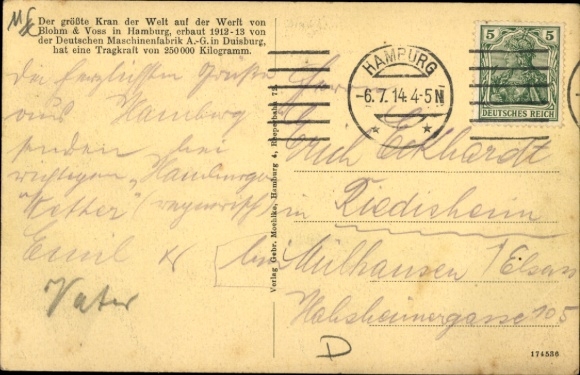 Der größte Kran der Welt auf der Werft von
Blohm & Voss in Hamburg, erbaut 1912-13 von
der Deutschen Maschinenfabrik A.-G. in Duisburg,
hat eine Tragkraft von 250000 Kilogramm.
Die herzlichsten Grüße
aus Hamburg
senden bei
richtigem "Hamburger
Wetter" (regnerisch)
Emil &
Vater
Verlag Gebr. Moehlke, Hamburg 4, Reeperbahn 72.
HAMBURG
-6.7.14.4-5N
5 5
DEUTSCHES REICH
Herrn
Erich Eckhardt
in Riedisheim
bei Mülhausen i/Elsass
Habsheimergasse 105
D
174536